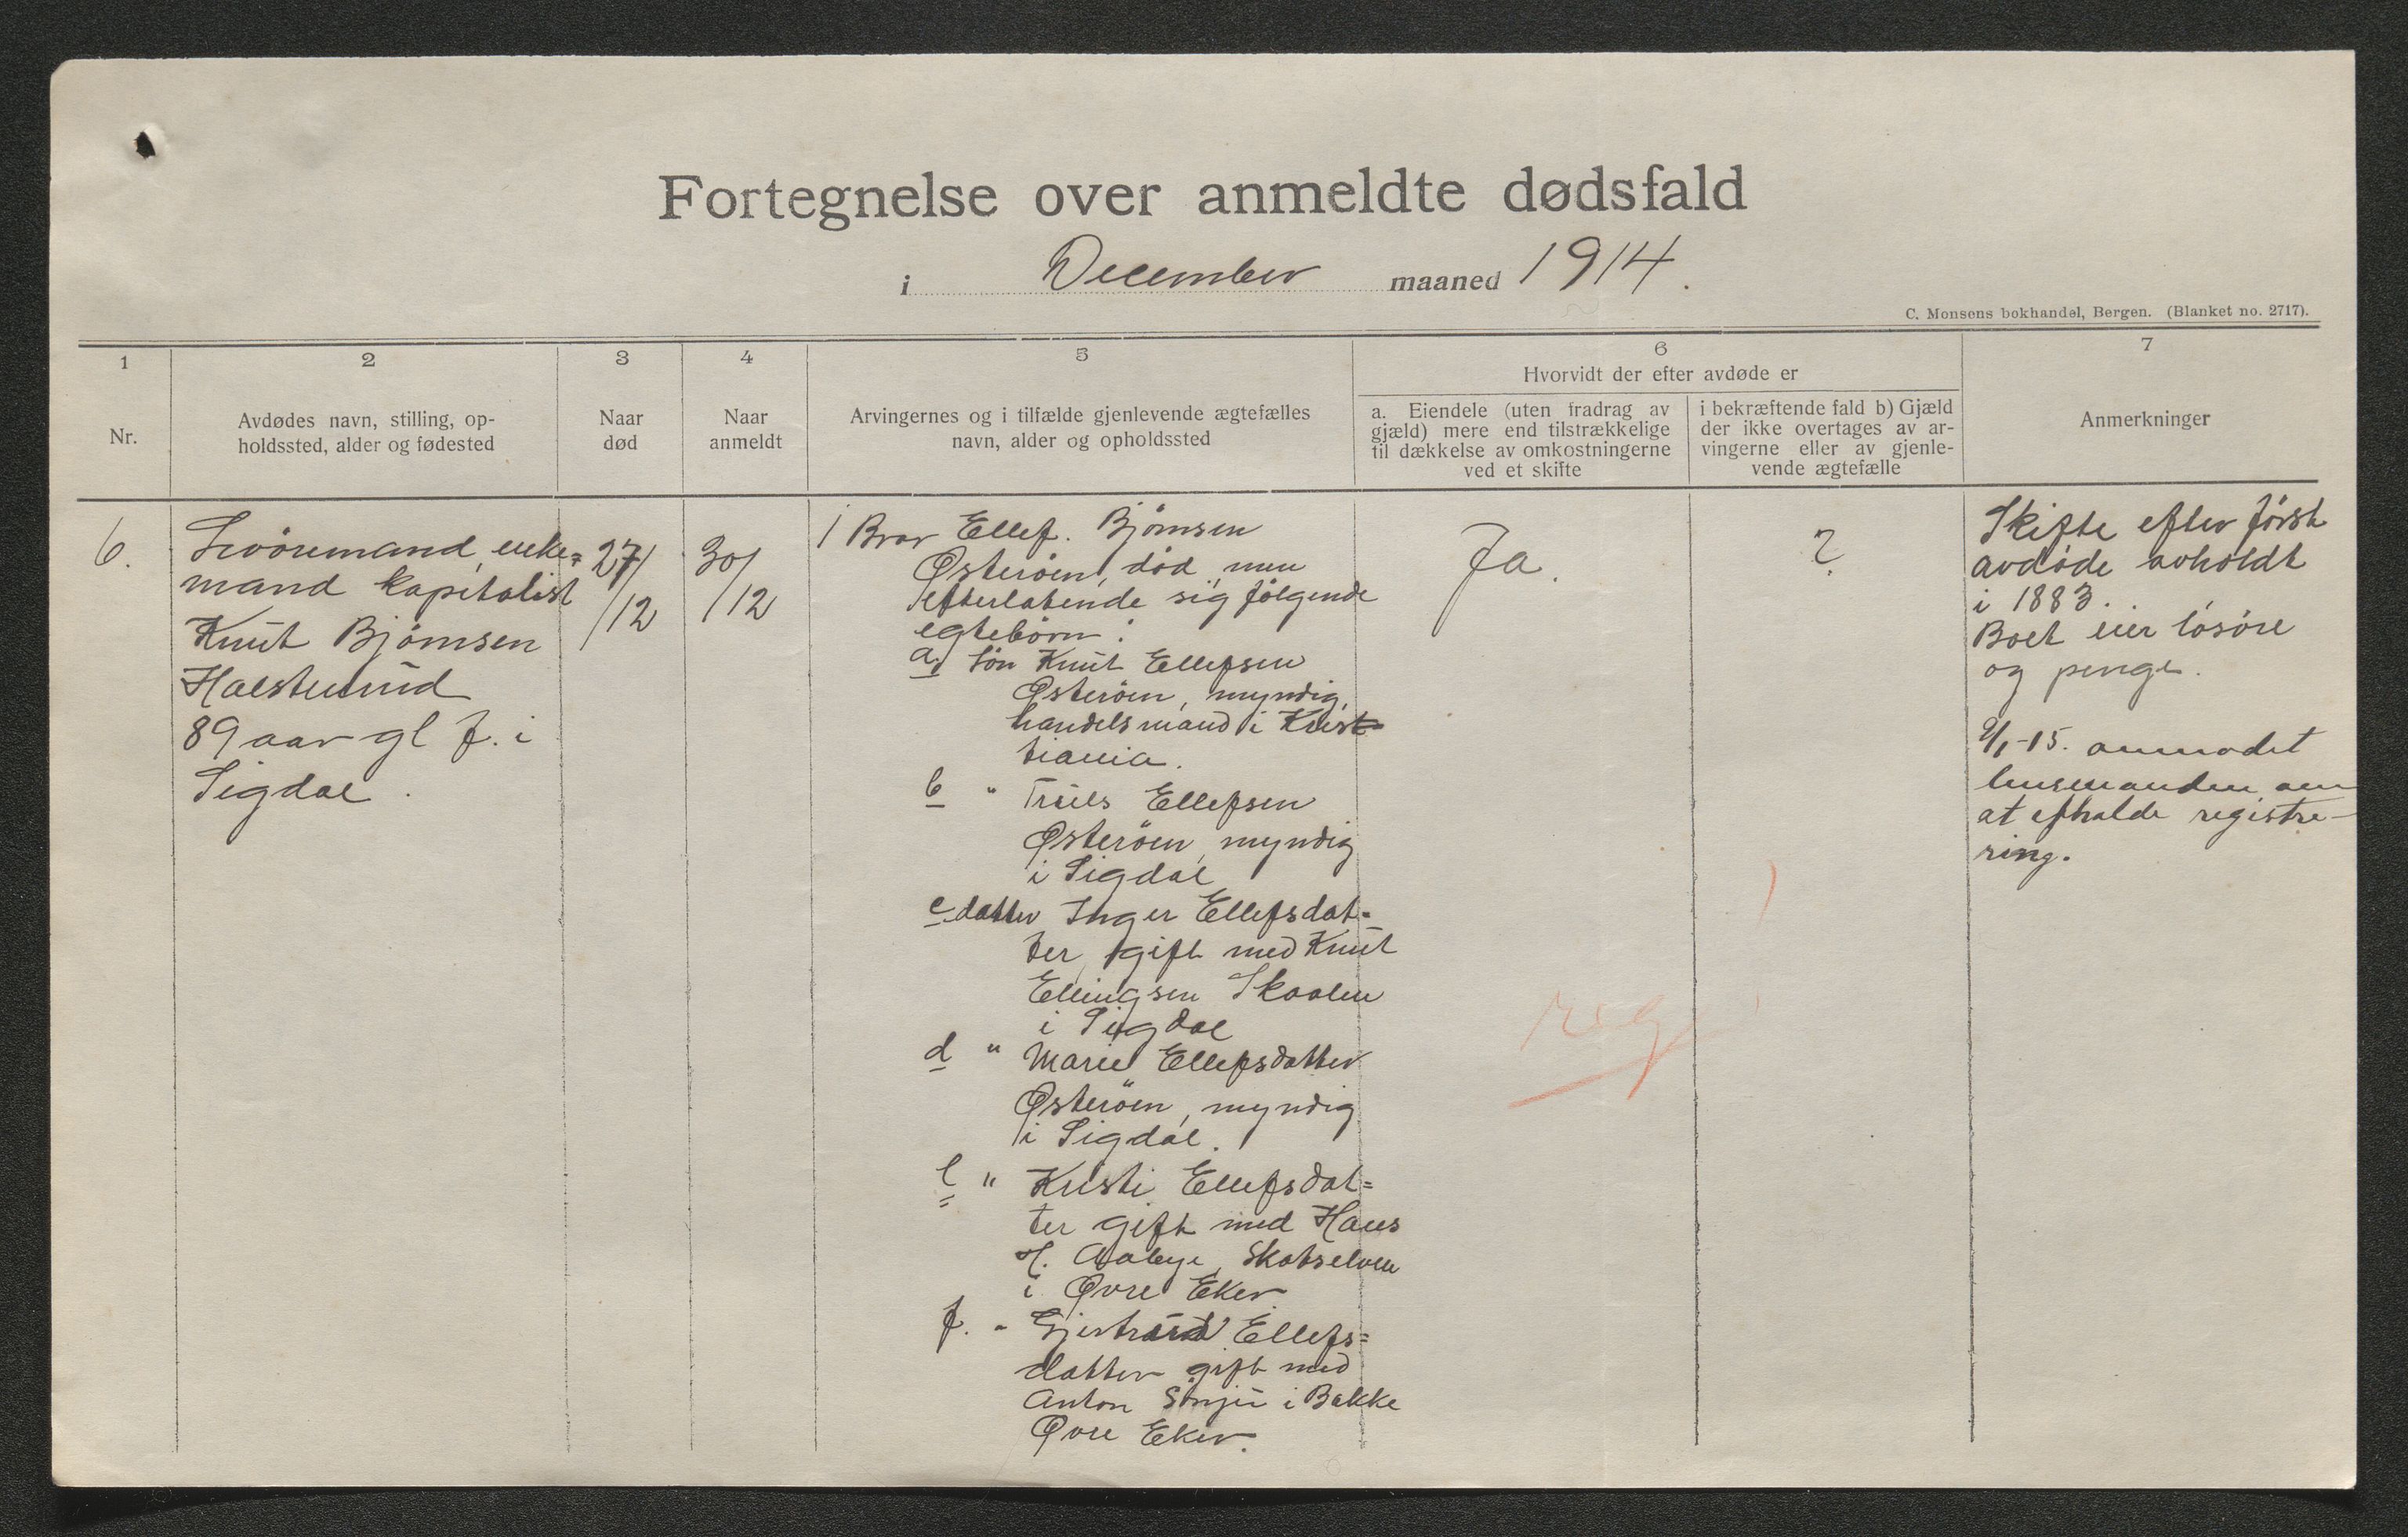 Fortegnelse over anmeldte dødsfald
i December maaned 1914.
C. Monsens bokhandel, Bergen. (Blanket no. 2717).
1
Nr.
2
Avdødes navn, stilling, op-
holdssted, alder og fødested
3
Naar
død
4
Naar
anmeldt
5
Arvingernes og i tilfælde gjenlevende ægtefælles
navn, alder og opholdssted
6
Hvorvidt der efter avdøde er
a. Eiendele (uten fradrag av
gjæld) mere end tilstrækkelige
til dækkelse av omkostningerne
ved et skifte
i bekræftende fald b) Gjæld
der ikke overtages av ar-
vingerne eller av gjenle-
vende ægtefælle
7
Anmerkninger
6.
enke=
mand kapitalist
Knut Bjørnsen
89 aar gl f. i
Sigdal.
27/12
30/12
1 Bror Ellef. Bjørnsen
Østerøen, død, men
efterlatende sig følgende
egtebørn:
a) Søn Knut Ellefsen
Østerøen, myndig,
handelsmand i Krist-
tiania.
b " Truls Ellefsen
Østerøen, myndig
i Sigdal
c datter Inger Ellefsdat=
ter, gift med Knut
Ellingsen Skaalen
i Sigdal
d " Marie Ellefsdatter
Østerøen, myndig
i Sigdal.
e " Kristi Ellefsdat=
ter gift med Hans
H. Aabye, Skotselven
i Øvre Eker
f. " Gjertrud Ellefs=
datter gift med
Anton i Bakke
Øvre Eker.
Ja.
?
reg
Skifte efter først
avdøde avholdt
i 1883.
Boet eier løsøre
og penge.
2/1-15. anmodet
lensmanden om
at efholde registre-
ring.